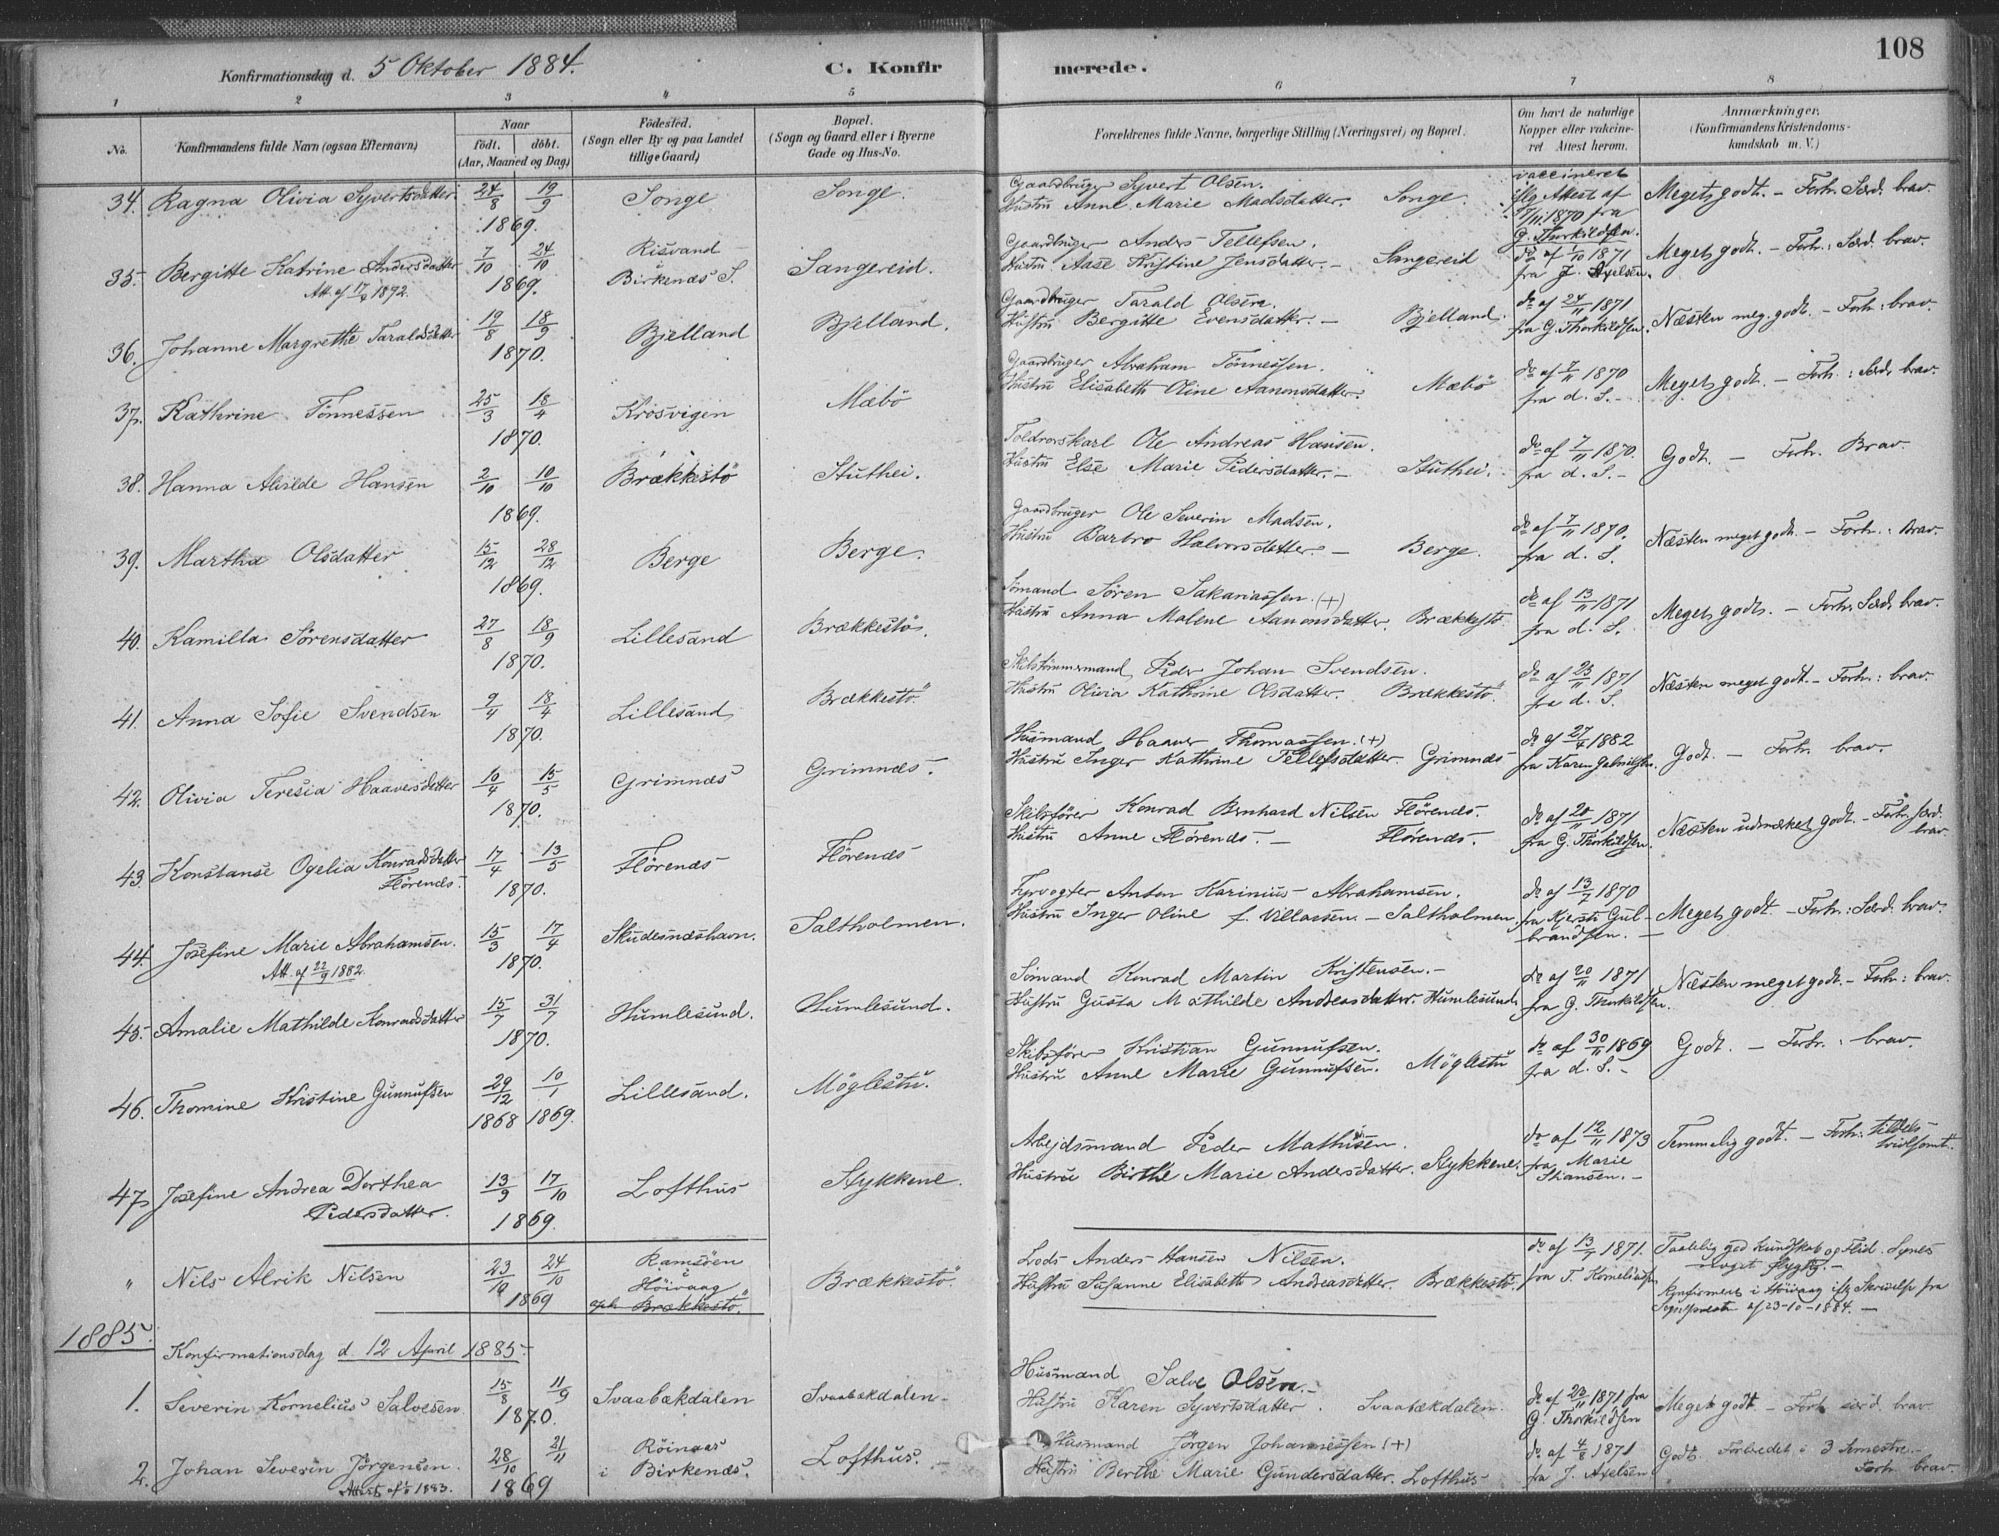 108
Konfirmationsdag d. 5 Oktober 1884.
C. Konfirmerede.
1 2 3 4 5 6 7 8
No.
Konfirmandens fulde Navn (ogsaa Efternavn)
Naar
födt. döbt.
(Aar, Maaned og Dag)
Födested.
(Sogn eller By og paa Landet
tillige Gaard)
Bopæl.
(Sogn og Gaard eller i Byerne
Gade og Hus-No.
Forældrenes fulde Navne, borgerlige Stilling (Næringsvei) og Bopæl.
Om havt de naturlige
Kopper eller vakcine-
ret Attest herom.
Anmærkninger.
(Konfirmandens Kristendoms-
kundskab m. V.)
34. Ragna Olivia Syvertsdatter 24/8 19/9 Songe Songe. Gaardbruger Syvert Olsen.
1869. Hustru Anne Marie Madsdatter. Songe. vaccineret
iflg Attest af
17/11 1870 fra
G. Thorkildsen. Meget godt. - Forh. Særd. brav.
35. Bergitte Katrine Andersdatter 7/10 24/10 Risvand i Sangereid. Gaardbruger Anders Tellefsen.
Att. af 17/9 1892. 1869. Birkenæs S. Hustru Aase Kristine Jensdatter. - Sangereid do af 1/10 1871
fra J. Axelsen. Meget godt. - Forh: Særd. brav.
36. Johanne Margrethe Taraldsdatter 19/8 18/9 Bjelland Bjelland. Gaardbruger Tarald Olsen.
1870. Hustru Bergitte Evensdatter. - Bjelland. do af 24/11 1871
fra G. Thorkildsen. Næsten meg. godt. - Forh: brav.
37. Kathrine Tönnessen 25/3 18/4 Krosvigen Mæbö Gaardbruger Abraham Tönnessen.
1870. Hustru Elisabeth Oline Aanonsdatter. Mæbö do af 7/11 1870
fra d. S. - Meget godt. - Forh.: Særd. brav.
38. Hanna Alvilde Hansen 2/10 10/10 Brækkestö Stuthei. Toldrorskarl Ole Andreas Hansen.
1869. Hustru Else Marie Pedersdatter. - Stuthei. do af 7/11 1870.
fra d. S. - Godt. - Forh. Brav.
39. Martha Olsdatter 15/12 28/12 Berge Berge. Gaardbruger Ole Severin Madsen.
1869. Hustru Barbro Halvorsdatter. - Berge. do af 7/11 1870.
fra d. S. Næsten meget godt. - Forh.: brav.
40. Kamilla Sörensdatter 27/8 18/9 Lillesand Brækkestö. Sömand Sören Sakariassen. (+)
1870. Hustru Anna Malene Aanonsdatter Brækkestö do af 13/11 1871
fra d. S. Meget godt. - Forh. Særd. brav.
41. Anna Sofie Svendsen 9/4 18/4 Lillesand Brækkestö. Skibstömmermand Peder Johan Svendsen.
1870. Hustru Olivia Kathrine Olsdatter. Brækkestö. do af 23/11 1871
fra d. S. Næsten meget godt. - Forh.: brav.
42. Olivia Teresia Haaversdatter 10/4 15/5 Grimnæs Grimnæs. Husmand Haaver Thomassen. (+)
1870. Hustru Inger Kathrine Tellefsdatter Grimnæs do af 27/4 1882
fra Karen Gabrielsen. Godt. - Forh. brav.
43. Konstanse Ogelia Konradsdatter 17/4 13/5 Flörenæs Flörenæs Skibsförer Konrad Bernhard Nilsen Flörenæs.
Flörenæs. 1870. Hustru Anne Flörenæs. - Flörenæs. do af 20/11 1871
fra G. Thorkildsen. Næsten udmærket godt. - Forh. særd. brav.
44. Josefine Marie Abrahamsen. 15/3 17/4 Skudesnæshavn. Saltholmen. Fyrvogter Anton Karinius Abrahamsen.
Att. af 22/9 1882. 1870. Hustru Inger Oline f. Villassen. - Saltholmen. do af 13/7 1870
fra Kjersti Gul-
brandsen. - Meget godt - Forh.: Særd. brav.
45. Amalie Mathilde Konradsdatter 15/7 31/7 Humlesund. Humlesund. Sömand Konrad Martin Kristensen. -
1870. Hustru Gusta Mathilde Andreasdatter. Humlesund. do af 20/11 1871
fra G. Thorkildsen. Næsten meget godt. - Forh: brav.
46. Thomine Kristine Gunnufsen 29/12 10/1 Lillesand. Möglestu. Skibsförer Kristian Gunnufsen.
1868 1869. Hustru Anne Marie Gunnufsen. Möglestu do af 30/11 1869
fra d. S. - Godt. - Forh.: brav.
47. Josefine Andrea Dorthea 13/9 17/10 Lofthus Stykkene. Arbejdsmand Peder Mathisen.
Pedersdatter. 1869. Hustru Birthe Marie Andersdatter. Stykkene. do af 12/11 1873
fra Marie
Temmelig godt. - Forh: tildels
tvivlsomt.
" Nils Alrik Nilsen 23/10 24/10 Ramsöen
i
Höivaag Brækkestö. Lods Anders Hansen Nilsen.
1869 Brækkestö. Hustru Susanne Elisabeth Andreasdatter. Brækkestö. do af 13/7 1871.
fra T. Korneliussen Taalelig god Kundskab og Flid. Synes
noget flygtig. -
Konfirmeret i Höivaag iflg Skrivelse fra
Sognepresten af 23-10-1884. -
1885.
Konfirmationsdag d. 12 April 1885.
1. Severin Kornelius Salvesen. 15/8 11/9 Svaabækdalen Svaabækdalen. Husmand Salve Olsen. -
1870. Hustru Karen Syvertsdatter. Svaabækdalen. do af 23/11 1871 fra
G. Thorkildsen Meget godt - Forh særd. brav
2. Johan Severin Jörgensen. 28/10 21/11 Röinaas
i Birkenæs. Lofthus. Husmand Jörgen Johannessen (+)
1883. 1869 Hustru Berthe Marie Gundersdatter. Lofthus do af 4/8 1871
fra J. Axelsen Godt. Forberedet i 3 Semestre. -
Forh. brav.